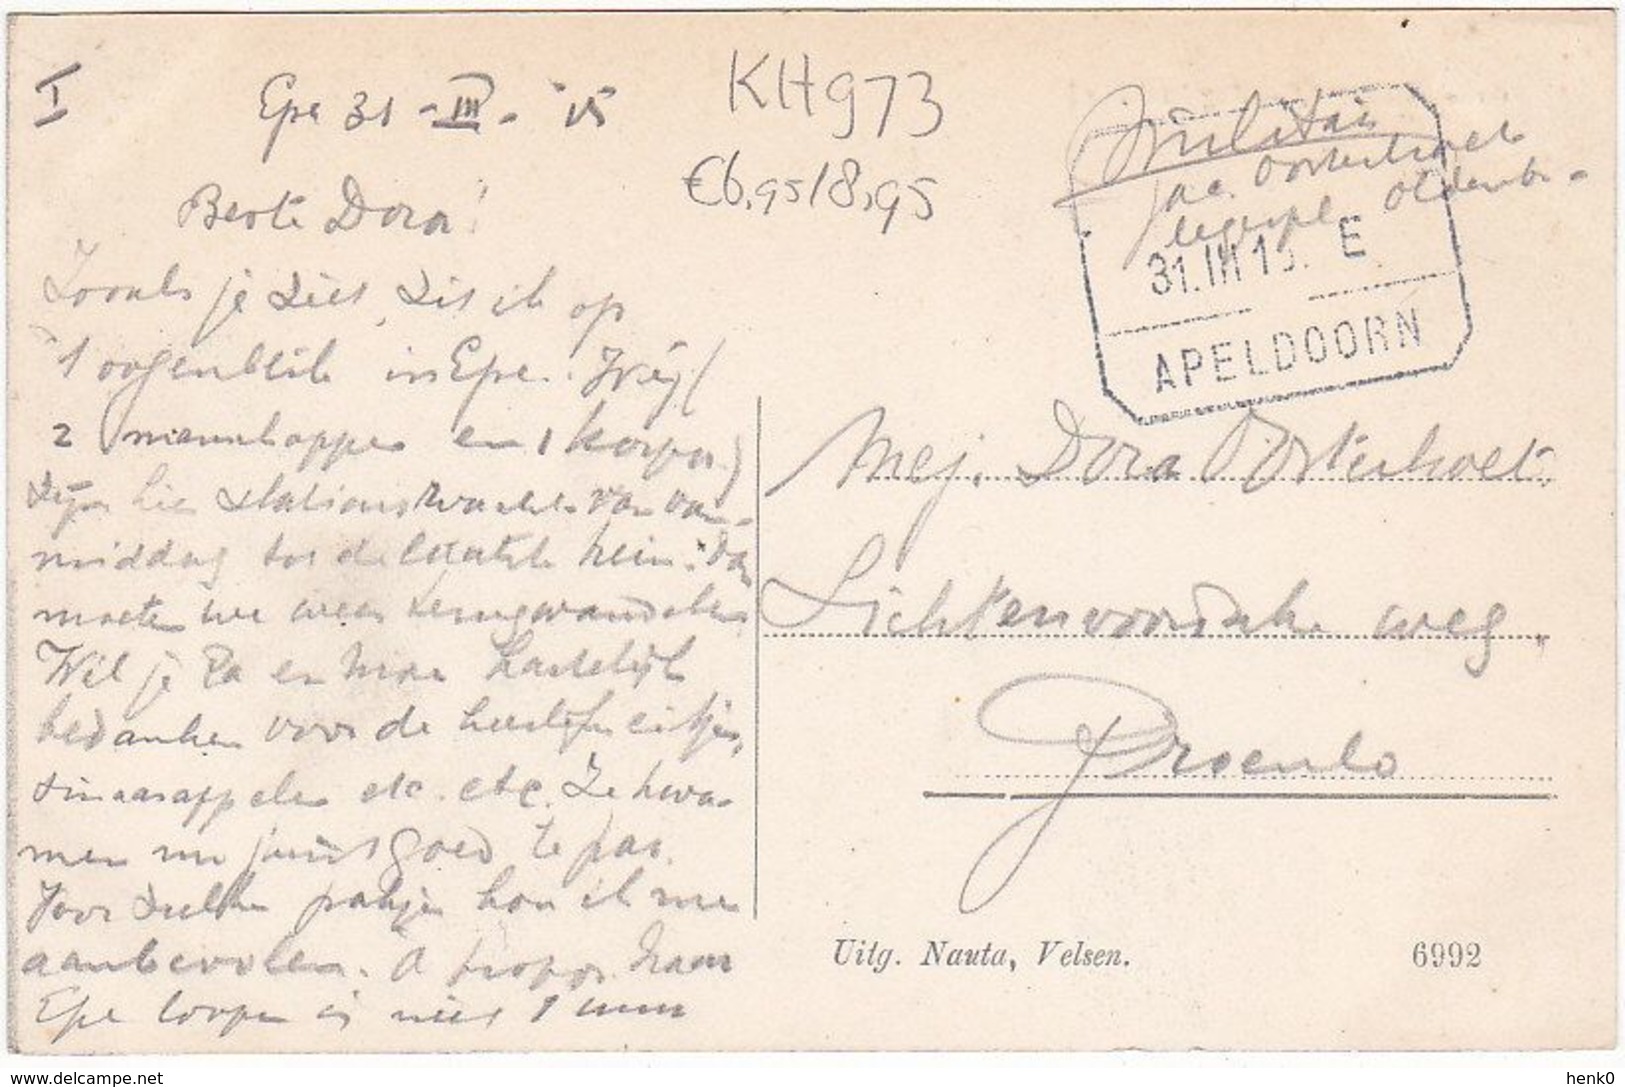 I
Epe 31 - III - '15
KH973
€6,95/8,95
Militair
Jac. Oosterholt
31.III.15. E
APELDOORN
Beste Dora!
Zooals je ziet, zit ik op
't oogenblik in Epe. Wij (
2 manschappen en 1 korpor.)
zijn hier stationswacht van van-
middag tot de laatste trein. Dan
moeten we weer terugwandelen
Wil je Pa en Moe hartelijk
bedanken voor de heerlijke eitjes,
sinaasappelen etc. etc. Ze kwa-
men nu juist goed te pas.
Voor zulke pakjes hou ik me
aanbevolen. A propos. Naar
Epe loopen is niet 1 uur
Mej. Dora Oosterholt.
Lichtenvoordsche weg.
Groenlo
Uitg. Nauta, Velsen.
6992
www.delcampe.net
henk0